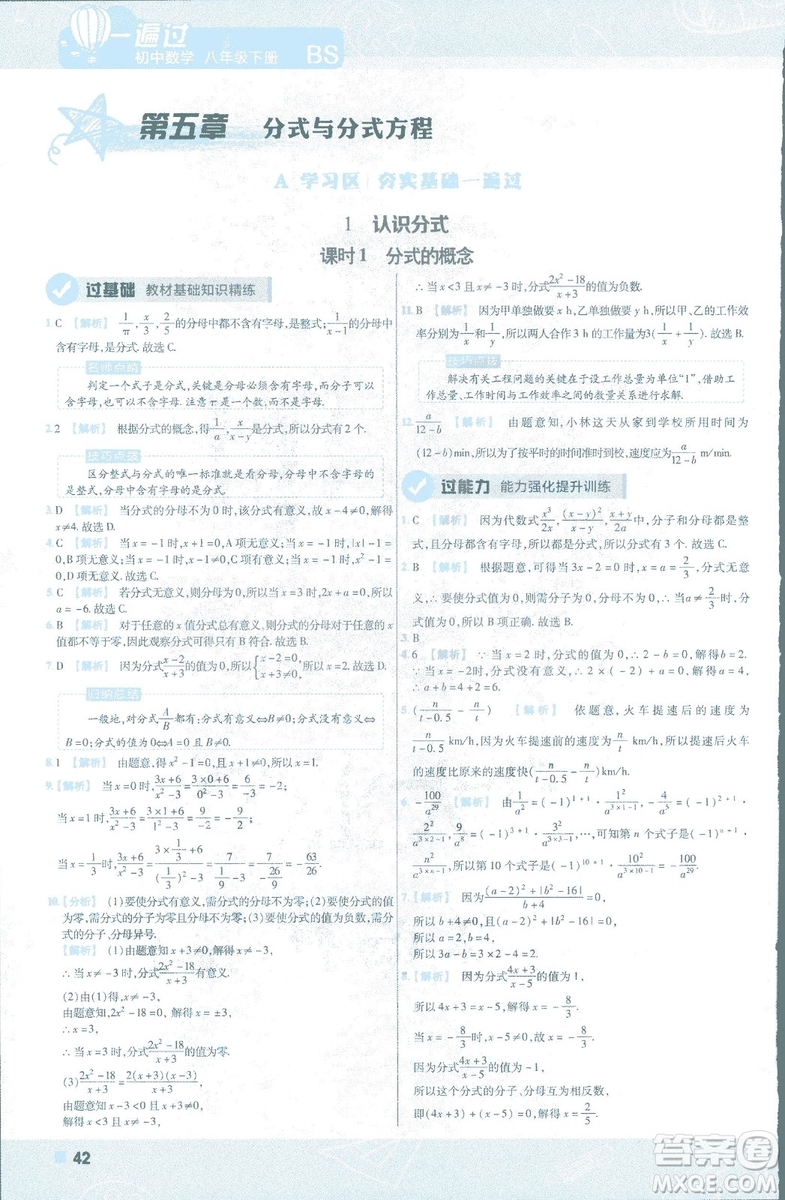 一遍过
初中数学 八年级下册 BS
第五章 分式与分式方程
A 学习区 夯实基础一遍过
1 认识分式
课时1 分式的概念
过基础 教材基础知识精练
1. C 【解析】 1/π, x/3, 2/5 的分母中都不含有字母,是整式; 1/(x-1) 的分母中
含有字母,是分式. 故选 C.
名师点睛
判定一个式子是分式,关键是分母必须含有字母,而分子可含有字
母,也可不含字母. π是常数,而不是字母.
2. 2 【解析】 根据分式的概念,得 1/a, x/(x-y) 是分式,所以分式有 2 个.
技巧点拨
区分整式与分式的唯一标准就是看分母,分母中不含字母的
是整式,分母中含有字母的是分式.
3. D 【解析】 当分式的分母不为 0 时,该分式有意义,故 x-4≠0,解得
x≠4. 故选 D.
4. C 【解析】 当 x=-1 时,x+1=0,A 项无意义;当 x=-1 时,|x|-1=
0,B 项无意义;当 x=-1 时,x-1≠0,C 项有意义;当 x=-1 时,x²-1=
0,D 项无意义. 故选 C.
5. C 【解析】 若分式无意义,则分母为 0,所以当 x=3 时,2x+a=0,
所以 a=-6. 故选 C.
6. B 【解析】 对于任意的 x 值分式总有意义,则分式的分母对于任意的 x
值都不等于零,因此观察分式可知只有 B 符合. 故选 B.
7. D 【解析】 因为分式 (x-2)/(x+3) 的值为 0,所以 {x-2=0, x+3≠0,} 所以 x=2. 故选 D.
归纳总结
一般地,对分式 A/B 都有:分式有意义⇔B≠0;分式无意义⇔
B=0;分式的值为 0⇔A=0 且 B≠0.
8. 1 【解析】 由题意,得 x²-1=0 且 x+1≠0,解得 x=1.
9. 【解析】 当 x=0 时,(3x+6)/(x²-3)=(3×0+6)/(0²-3)=6/(-3)=-2.
当 x=1 时,(3x+6)/(x²-3)=9/(1²-3)=9/(-2)=-9/2.
当 x=1/3 时,(3x+6)/(x²-3)=(3×1/3+6)/((1/3)²-3)=7/(1/9-3)=7/(-26/9)=-63/26.
10. 【分析】 (1)要使分式有意义,需分式的分母不为零;(2)要使分式的值
为零,需分式的分子为零且分母不为零;(3)要使分式的值为负数,需分
式的分子、分母异号.
【解析】 (1)由题意知 x+3≠0,解得 x≠-3,
∴当 x≠-3 时,分式 (2x²-18)/(x+3) 有意义.
(2)由(1)得,x≠-3,
由题意知,2x²-18=0,解得 x=3 或 x=-3,
∴x=3,
∴当 x=3 时,分式 (2x²-18)/(x+3) 的值为零.
(3) (2x²-18)/(x+3)=2(x+3)(x-3)/(x+3),
由题意知 x-3<0 且 x+3≠0,
解得 x<3 且 x≠-3,
∴当 x<3 且 x≠-3 时,分式 (2x²-18)/(x+3) 的值为负数.
11. B 【解析】 因为甲单独做要 x h,乙单独做要 y h,所以甲、乙的工作效
率分别为 1/x 和 1/y,所以两人合作 3 h 的工作量为 3(1/x+1/y). 故选 B.
技巧点拨
解决有关工程问题的关键在于设工作总量为单位“1”,借助工
作总量、工作时间与工作效率之间的数量关系进行求解.
12. a/(12-b) 【解析】 由题意知,小林这天从家到学校所用时间为
(12-b)min,所以为了按平时的时间到校,速度应为 a/(12-b).
过能力 能力强化提升训练
1. C 【解析】 因为代数式 x³/2x, (x-y)²/(x-y), (x+y)/2a 中,分子、分母都是整式,
且分母都含有字母,所以它们都是分式. 故选 C.
2. B 【解析】 根据题意,可得当 3x-2=0 时,x=2/3,当 x=2/3 时,x-a≠
0. ∴要使分式的值为 0,则需分子为 0,分母不为 0,∴当 a≠2/3 时,分
式的值为 0,所以 B 项正确. 故选 B.
3. B
4. 6 【解析】 ∵当 x=2 时,分式的值为零,∴2-b=0,解得 b=2.
∵当 x=-2 时,分式无意义,∴2×(-2)+a=0,解得 a=4,
∴a+b=4+2=6.
5. (n/(t-0.5)-n/t) 【解析】 依题意,火车提速后的速度为
n/(t-0.5) km/h,因为火车提速前的速度为 n/t km/h,所以火车提速后
的速度比原来的速度快(n/(t-0.5)-n/t)km/h.
6. -100/a²⁹ 【解析】 由 1/a²=(-1)¹⁺¹·1²/a³ˣ¹⁻¹,-4/a⁵=(-1)²⁺¹·
2²/a³ˣ²⁻¹,9/a⁸=(-1)³⁺¹·3²/a³ˣ³⁻¹,…,可知第 n 个式子为(-1)ⁿ⁺¹·
n²/a³ˣⁿ⁻¹,所以第 10 个式子是(-1)¹⁰⁺¹·10²/a³ˣ¹⁰⁻¹=-100/a²⁹.
7. 【解析】 因为 ((a-2)²+|b²-16|)/(b+4)=0,
所以 b+4≠0,且(a-2)²+|b²-16|=0,
所以 a=2,b=4,
所以 3a-b=3×2-4=2.
8. 【解析】 因为分式 (4x+3)/(x-5) 的值为 1,
所以 4x+3=x-5,所以 3x=-8,所以 x=-8/3.
当 x=-8/3 时,x-5≠0,故 x=-8/3.
因为分式 (4x+3)/(x-5) 的值为-1,
所以这个分式的分子、分母互为相反数,
所以(4x+3)+(x-5)=0,解得 x=2/5.
42
答案圈
MXQE.COM